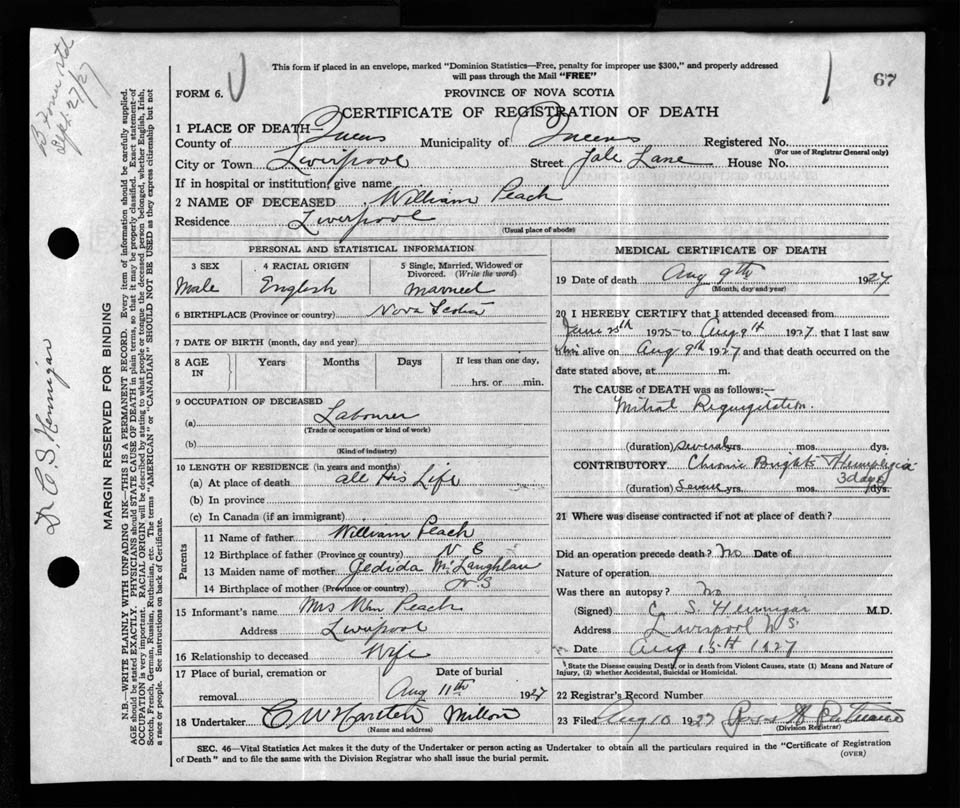 This form if placed in an envelope, marked "Dominion Statistics—Free, penalty for improper use $300," and properly addressed
will pass through the Mail "FREE"
67
FORM 6.
PROVINCE OF NOVA SCOTIA
CERTIFICATE OF REGISTRATION OF DEATH
1 PLACE OF DEATH—
County of Queens Municipality of Queens Registered No.
(For use of Registrar General only)
City or Town Liverpool Street Lane House No.
If in hospital or institution, give name
2 NAME OF DECEASED William Peach
Residence Liverpool
(Usual place of abode)
PERSONAL AND STATISTICAL INFORMATION
3 SEX 4 RACIAL ORIGIN 5 Single, Married, Widowed or Divorced. (Write the word)
Male English Married
6 BIRTHPLACE (Province or country) Nova Scotia
7 DATE OF BIRTH (month, day and year)
8 AGE IN Years Months Days If less than one day,
hrs. or min.
9 OCCUPATION OF DECEASED
(a) Labourer
(Trade or occupation or kind of work)
(b)
(Kind of industry)
10 LENGTH OF RESIDENCE (in years and months)
(a) At place of death all His Life
(b) In province
(c) In Canada (if an immigrant)
Parents
11 Name of father William Peach
12 Birthplace of father (Province or country) N S
13 Maiden name of mother Jedida McLaughlan
14 Birthplace of mother (Province or country) N S
15 Informant's name Mrs Wm Peach
Address Liverpool
16 Relationship to deceased Wife
17 Place of burial, cremation or removal Date of burial
Aug 11th 1927
18 Undertaker C W Milton
(Name and address)
MEDICAL CERTIFICATE OF DEATH
19 Date of death Aug 9th 1927
(Month, day and year)
20 I HEREBY CERTIFY that I attended deceased from
June 25th 1925 to Aug 9th 1927, that I last saw
him alive on Aug 9th 1927 and that death occurred on
date stated above, at m.
The CAUSE of DEATH was as follows:—
Mitral Regurgitation.
(duration) several yrs. mos. dys.
CONTRIBUTORY Chronic Brights Hemiplegia
3 days
(duration) yrs. mos. dys.
21 Where was disease contracted if not at place of death?
Did an operation precede death? No Date of
Nature of operation
Was there an autopsy? No
(Signed) C. S. Hennigar M.D.
Address Liverpool N.S.
Date Aug 15th 1927
State the Disease causing Death, or in death from Violent Causes, state (1) Means and Nature of
Injury, (2) whether Accidental, Suicidal or Homicidal.
22 Registrar's Record Number
23 Filed Aug 10 1927
(Division Registrar)
SEC. 46—Vital Statistics Act makes it the duty of the Undertaker or person acting as Undertaker to obtain all the particulars required in the "Certificate of Registration
of Death" and to file the same with the Division Registrar who shall issue the burial permit.
(OVER)
MARGIN RESERVED FOR BINDING
N.B.—WRITE PLAINLY WITH UNFADING INK—THIS IS A PERMANENT RECORD. Every item of information should be carefully supplied.
AGE should be stated EXACTLY. PHYSICIANS should STATE CAUSE OF DEATH in plain terms, so that it may be properly classified. Exact statement of
OCCUPATION is very important. RACIAL ORIGIN will be described by stating to what people or tongue the deceased person belonged, whether English, Irish,
Scotch, French, German, Russian, Ruthenian, etc. The terms "AMERICAN" or "CANADIAN" SHOULD NOT BE USED as they express citizenship but not
a race or people. See instructions on back of Certificate.
Dr C. S. Hennigar